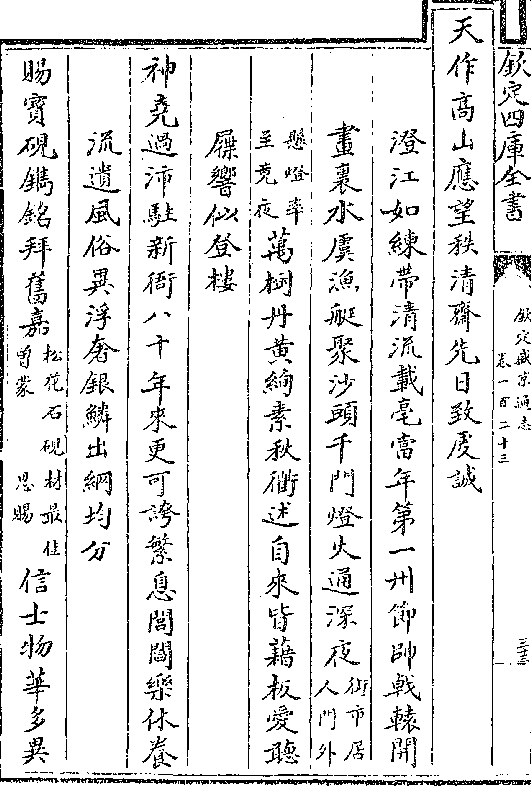 欽定四庫全書
欽定盛京通志
卷一百二十三
三十三
天作高山應望秩清齋先日致虔誠
澄江如練帶清流載毫當年第一州節帥戟轅開
畫裏水虞漁艇聚沙頭千門燈火通深夜街市居人門外
懸燈率至竟夜萬樹丹黄絢素秋衢述自來皆藉板愛聽
屧響似登樓
神堯過沛駐新衙八十年來更可誇繁息閭閻樂休養
流遺風俗異浮奢銀鱗出網均分
賜寳硯鐫銘拜舊嘉松花石硯材最佳曾蒙恩賜信士物華多異